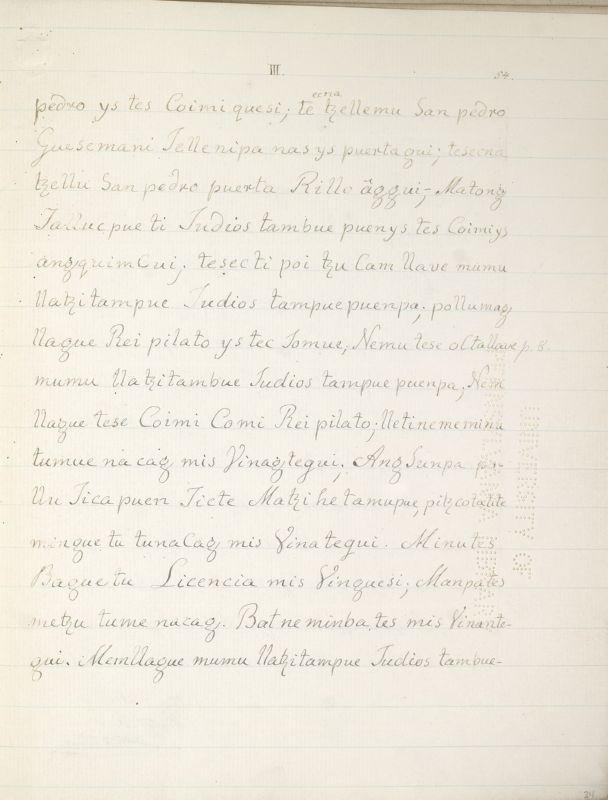 III.
54.
pêdro ys tes Coimi quesi; te ecna tzellemu San pedro
Guesemani Tellenipa nas ys puerta qui; tesecna
tzellu San pedro puerta Rillo äggui-; Matonz
Talluc pue ti Judios tambue puenys tes Coimi ys
anz quim Cui; tesec ti poi tzu Cam Uave mumu
Uatzi tampue Judios tampue puenpa; pollumaz
Uaque Rei pilato ys tec Tomue; Nemu tese ol tallave p. 8.
mumu Uatzitambue Judios tampue puenpa; Nem
Uaque tese Coimi Comi Rei pilato; Uetinememina
tumue na caz mis Vinaztegui. Anz Sunpa
Un Jica puen Ticte Matzi he tamupue, pitzcotatite
mingue tu tuna Caz mis Vinategui. Minutes
Bague tu Licencia mis Vinguesi; Manpates
metzu tume nacaz. Bat ne minba tes mis Vinante-
gui. Mem Uague mumu Uatzitampue Judios tambue-
24